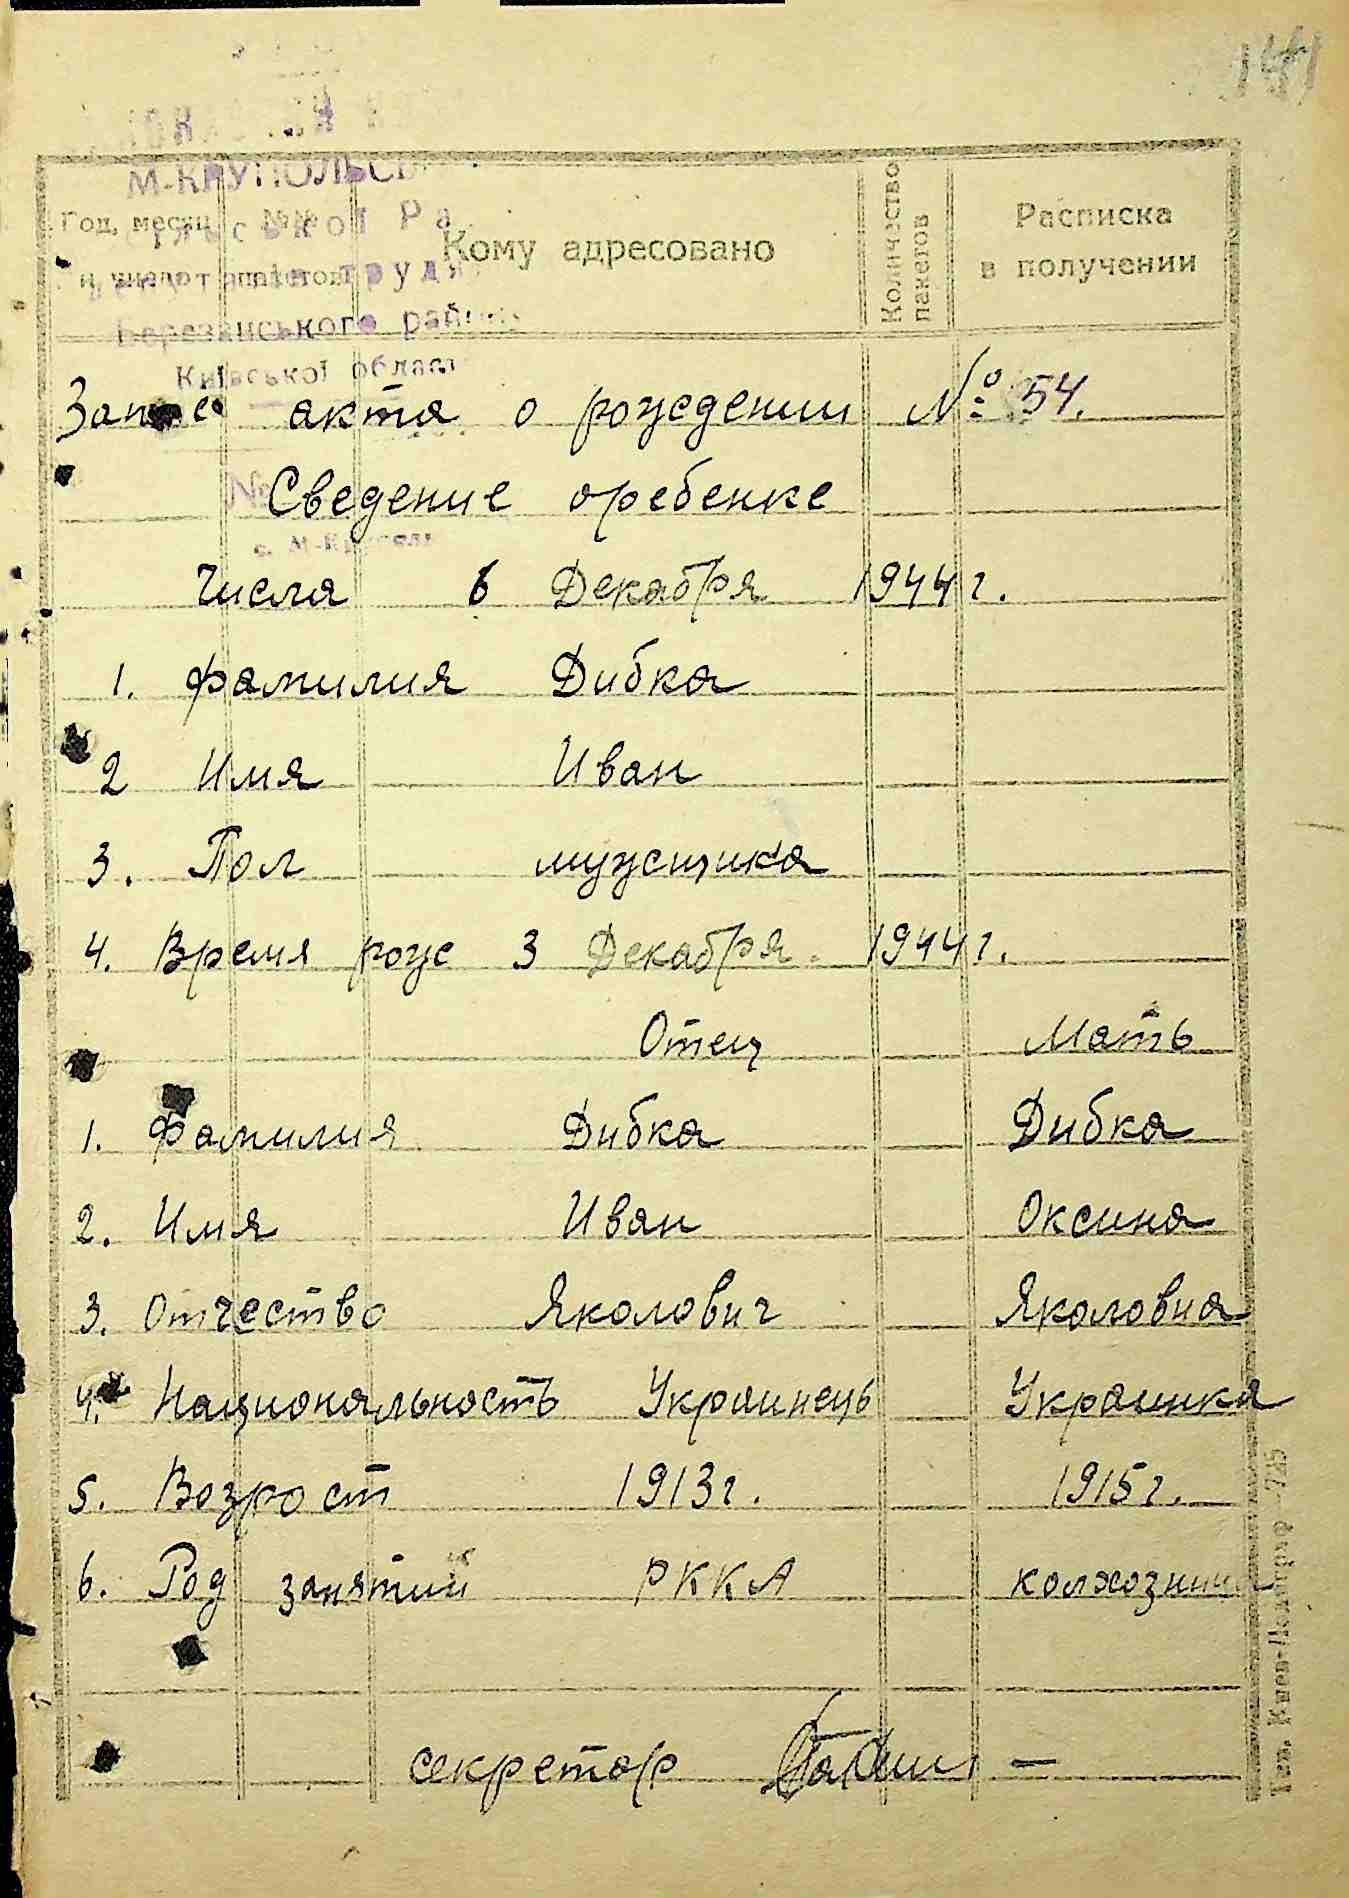 141
М-КРУПОЛЬСЬ
кої Ра
трудя
Березанського райо
Київської област
№
с. М-Круполь
Год, месяц
Кому адресовано
Количество пакетов
Расписка
в получении
Запись акта о рождении № 54.
Сведение оребенке
Числа 6 Декабря 1944 г.
1. Фамилия Дибка
2 Имя Иван
3. Пол мужсщина
4. Время рож 3 Декабря. 1944 г.
Отец Мать
1. Фамилия Дибка Дибка
2. Имя Иван Оксина
3. Отчество Яколович Яколовна
4. Национальность Украинець Украинка
5. Возрост 1913 г. 1915 г.
6. Род занятий РККА колхозница
секретор
Тип. Киев-Полиграф